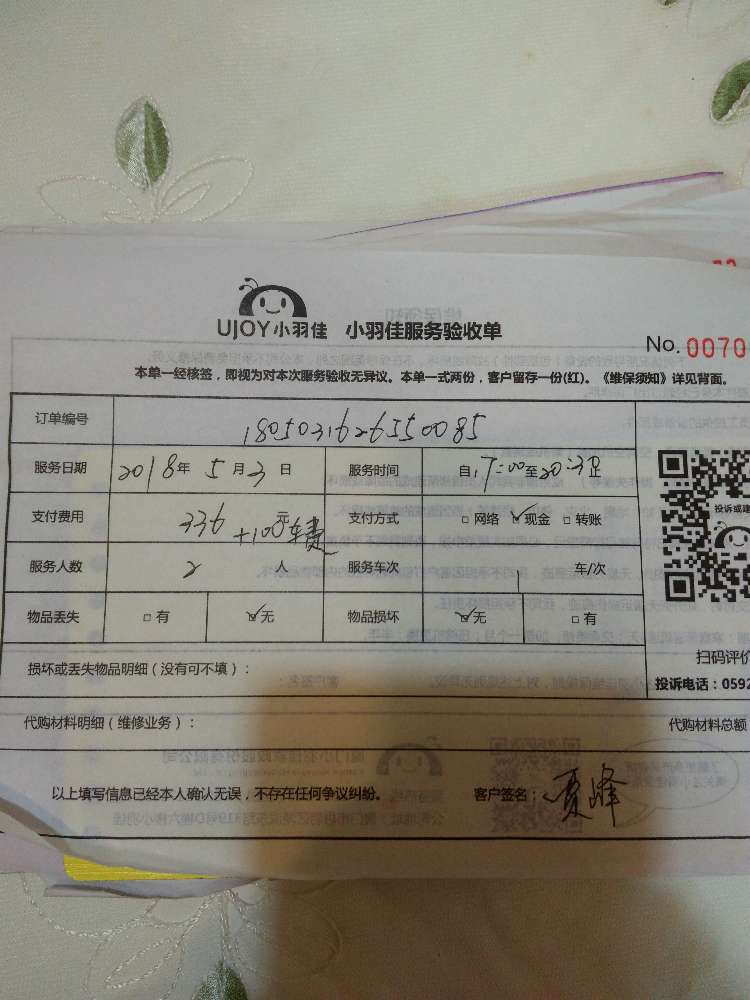 UJOY小羽佳 小羽佳服务验收单
No. 0070
本单一经核签，即视为对本次服务验收无异议。本单一式两份，客户留存一份(红)。《维保须知》详见背面。
订单编号 1805031626550085
服务日期 2018年 5月3日 服务时间 自17:00至20:30止
支付费用 336元+100车费 支付方式 □网络 ☑现金 □转账
服务人数 2 人 服务车次 车/次
物品丢失 □有 ☑无 物品损坏 ☑无 □有
投诉或建
扫码评价
投诉电话：0592
损坏或丢失物品明细（没有可不填）：
代购材料明细（维修业务）： 代购材料总额
以上填写信息已经本人确认无误，不存在任何争议纠纷。 客户签名：夏峰